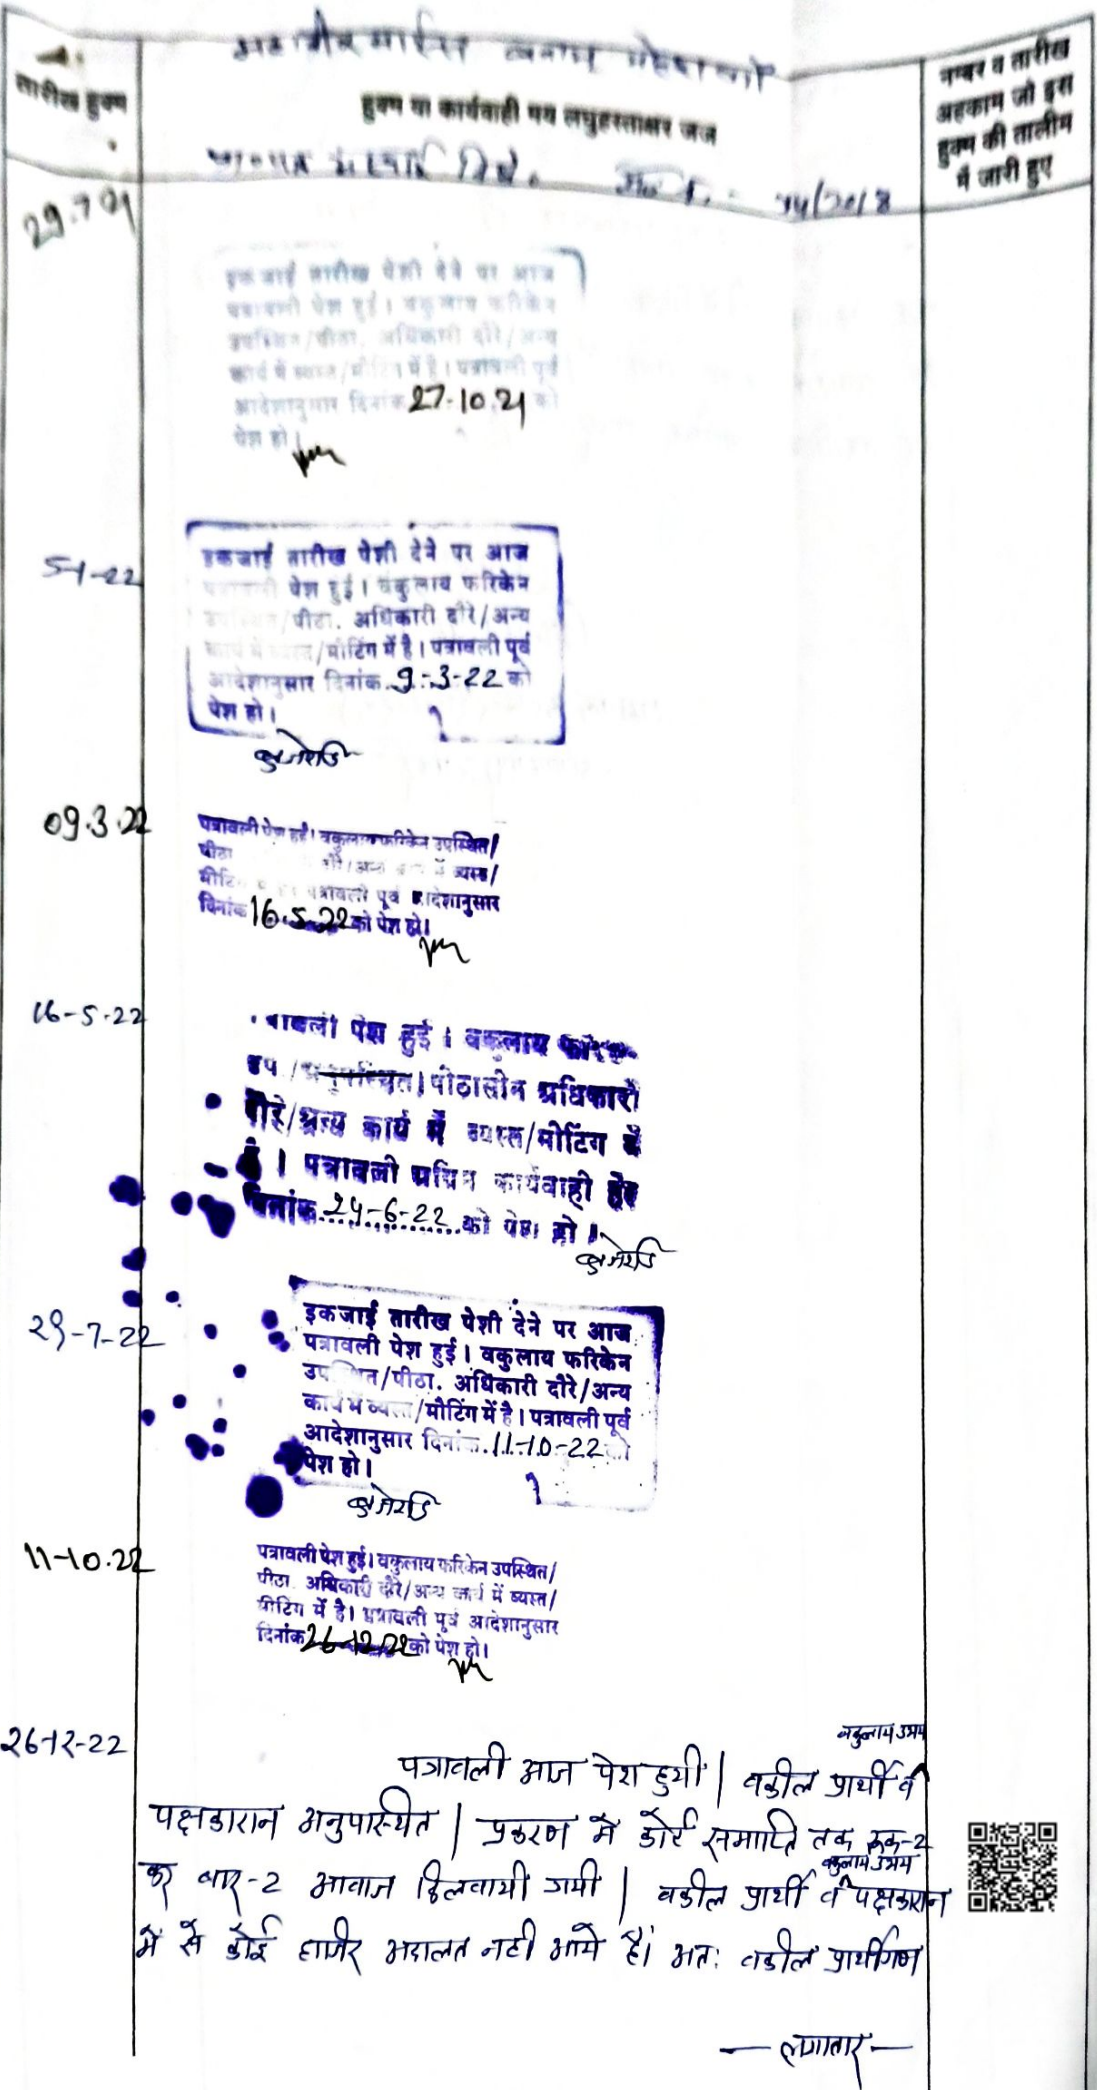 तारीख हुक्म
हुक्म या कार्यवाही मय लघुहस्ताक्षर जज
नम्बर व तारीख
अहकाम जो इस
हुक्म की तालीम
में जारी हुए
बनाम
/2018
29.7.21
इकजाई तारीख पेशी देने पर आज
पत्रावली पेश हुई। वकुलाय फरिकेन
उपस्थित/पीठा. अधिकारी दौरे/अन्य
कार्य में व्यस्त/मीटिंग में है। पत्रावली पूर्व
आदेशानुसार दिनांक 27.10.21 को
पेश हो।
5-1-22
इकजाई तारीख पेशी देने पर आज
पत्रावली पेश हुई। वकुलाय फरिकेन
उपस्थित/पीठा. अधिकारी दौरे/अन्य
कार्य में व्यस्त/मीटिंग में है। पत्रावली पूर्व
आदेशानुसार दिनांक 9-3-22 को
पेश हो।
09.3.22
पत्रावली पेश हुई। वकुलाय फरिकेन उपस्थित/
पीठा दौरे/अन्य में व्यस्त/
मीटिंग पत्रावली पूर्व आदेशानुसार
दिनांक 16.5.22 को पेश हो।
16-5-22
पत्रावली पेश हुई। वकुलाय
उप/अनुपस्थित। पीठासीन अधिकारी
दौरे/अन्य कार्य में व्यस्त/मीटिंग में
है। पत्रावली अग्रिम कार्यवाही हेतु
दिनांक 29-6-22 को पेश हो।
29-7-22
इकजाई तारीख पेशी देने पर आज
पत्रावली पेश हुई। वकुलाय फरिकेन
उपस्थित/पीठा. अधिकारी दौरे/अन्य
कार्य में व्यस्त/मीटिंग में है। पत्रावली पूर्व
आदेशानुसार दिनांक 11-10-22 को
पेश हो।
11-10-22
पत्रावली पेश हुई। वकुलाय फरिकेन उपस्थित/
पीठा. अधिकारी दौरे/अन्य कार्य में व्यस्त/
मीटिंग में है। पत्रावली पूर्व आदेशानुसार
दिनांक 26-12-22 को पेश हो।
26-12-22
वकुलाय उभय
पत्रावली आज पेश हुयी | वकील प्रार्थी व
पक्षकारान अनुपस्थित | प्रकरण में कोर्ट समाप्ति तक रूक-2
वकुलाय उभय
कर बार-2 आवाज दिलवायी गयी | वकील प्रार्थी व पक्षकारान
में से कोई हाजिर अदालत नही आये है। अत: वकील प्रार्थीगण
— लगातार —